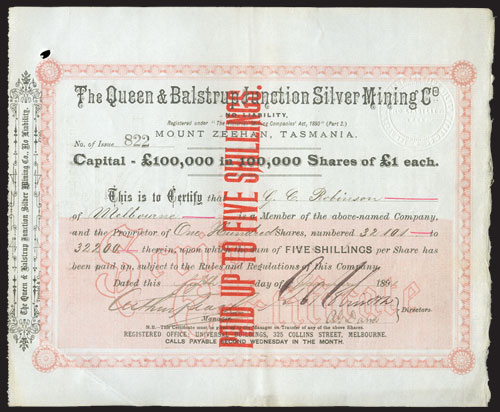 The Queen & Balstrup Junction Silver Mining Co
NO LIABILITY.
Registered under "The Mining Companies' Act, 1890" (Part 2.)
MOUNT ZEEHAN, TASMANIA.
No. of Issue 822
Capital - £100,000 in 100,000 Shares of £1 each.
This is to Certify that G. C. Robinson
of Melbourne is a Member of the above-named Company,
and the Proprietor of One Hundred Shares, numbered 32101 to
32200 therein, upon which the sum of FIVE SHILLINGS per Share has
been paid up, subject to the Rules and Regulations of this Company.
Dated this day of 189
Manager
Directors.
N.B.- This Certificate must be given to the Manager on Transfer of any of the above Shares.
REGISTERED OFFICE, UNIVERSAL BUILDINGS, 325 COLLINS STREET, MELBOURNE.
CALLS PAYABLE SECOND WEDNESDAY IN THE MONTH.
PAID UP TO FIVE SHILLINGS.
The Queen & Balstrup Junction Silver Mining Co. No Liability.